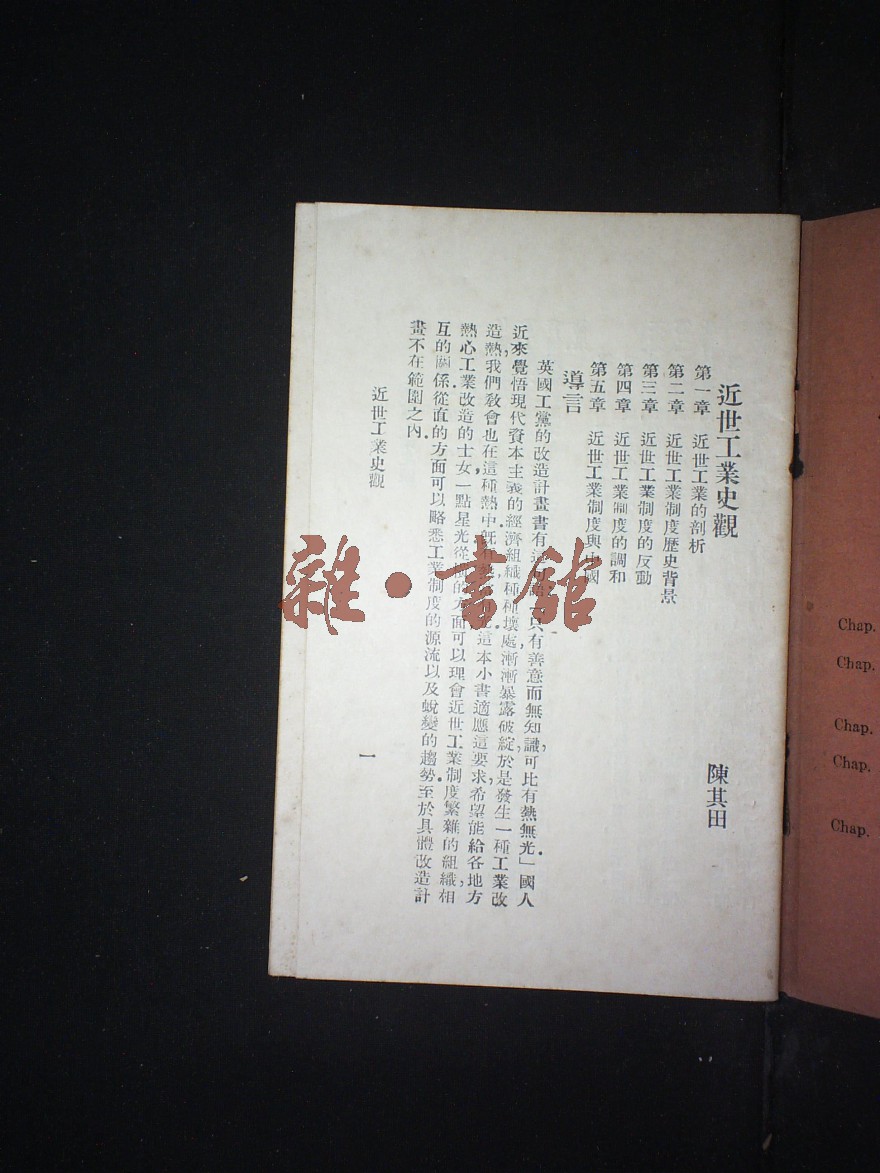 近世工業史觀
陳其田
第一章 近世工業的剖析
第二章 近世工業制度歷史背景
第三章 近世工業制度的反動
第四章 近世工業制度的調和
第五章 近世工業制度與中國
導言
英國工黨的改造計畫書有這句話「只有善意而無知識，可比有熱無光．」國人
近來，覺悟現代資本主義的經濟組織種種壞處，漸漸暴露破綻，於是發生一種工業改
造熱，我們教會也在這種熱中，這本小書適應這要求，希望能給各地方
熱心工業改造的士女一點星光，從的方面可以理會近世工業制度繁雜的組織，相
互的關係，從直的方面可以略悉工業制度的源流以及蛻變的趨勢．至於具體改造計
畫不在範圍之內．
近世工業史觀
一
雜·書館
Chap.
Chap.
Chap.
Chap.
Chap.